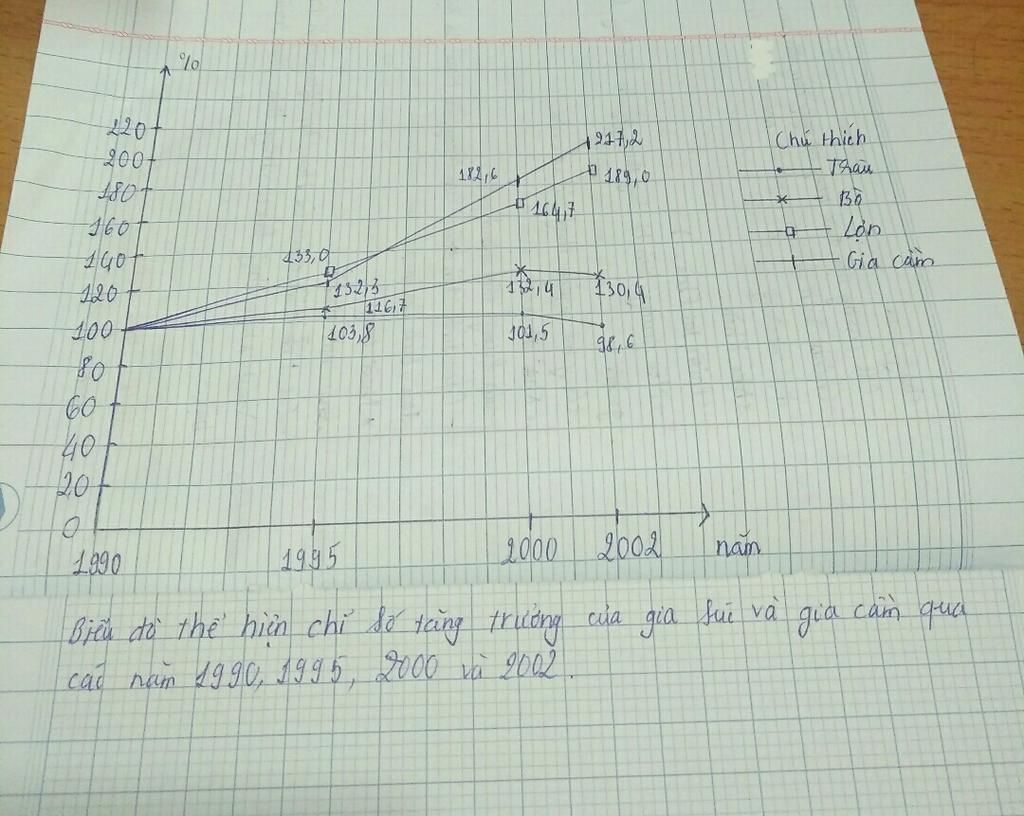 %
220
200
180
160
140
120
100
80
60
40
20
0
1990
1995
2000
2002
năm
133,0
132,3
116,7
103,8
182,6
164,7
132,4
101,5
217,2
189,0
130,4
98,6
Chú thích
Trâu
Bò
Lợn
Gia cầm
Biểu đồ thể hiện chỉ số tăng trưởng của gia súc và gia cầm qua
các năm 1990, 1995, 2000 và 2002.